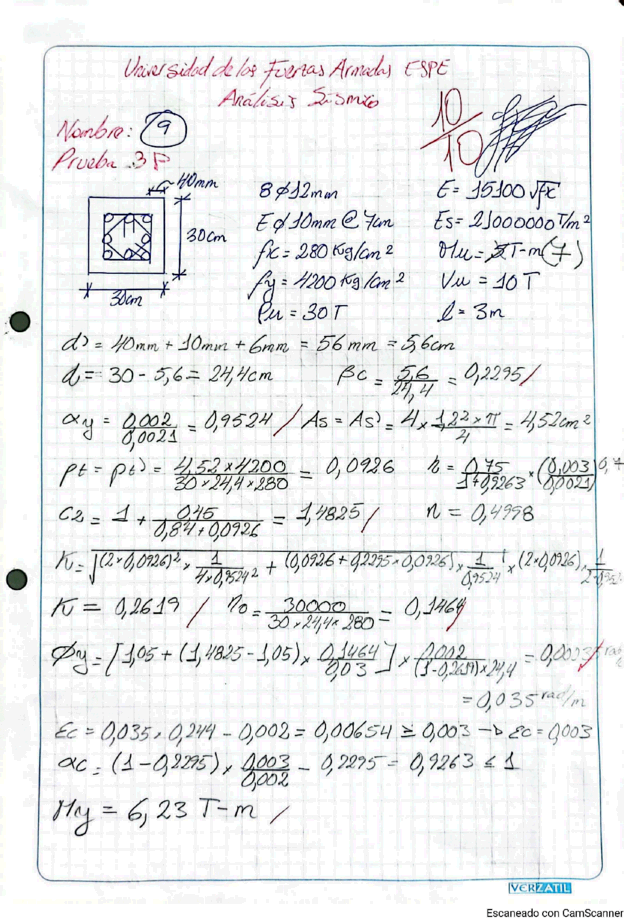 Universidad de las Fuerzas Armadas ESPE
Análisis Sísmico
10/10
Nombre: 9
Prueba 3P
40mm
30cm
30cm
8 ϕ 12mm
E ϕ 10mm @ 7cm
fc = 280 Kg/cm²
fy = 4200 Kg/cm²
Pu = 30T
E = 15100 √fc
Es = 21000000 T/m²
Mu = T-m (7)
Vu = 10T
l = 3m
d' = 40mm + 10mm + 6mm = 56mm = 5,6cm
d = 30 - 5,6 = 24,4cm    βc = 5,6/24,4 = 0,2295
αy = 0.002/0.0021 = 0,9524    As = As' = 4 × 1,2² × π/4 = 4,52cm²
ρt = ρt' = 4,52 × 4200/30 × 24,4 × 280 = 0,0926    n = 0,75/1+0,9263 × (0,003/0,0021)^0,7
C2 = 1 + 0,45/0,84 + 0,0926 = 1,4825    n = 0,4998
K = √(2×0,0926)² × 1/4×0,9524² + (0,0926 + 0,2295×0,0926) × 1/0,9524 × (2×0,0926) × 1/2×0,952
K = 0,2619    no = 30000/30×24,4×280 = 0,1464
ϕy = [1,05 + (1,4825 - 1,05) × 0,1464/0,03] × 0,002/(1-0,2619)×24,4 = rad
= 0,035 rad/m
Ec = 0,035 × 0,244 - 0,002 = 0,00654 ≥ 0,003 → Ec = 0,003
αc = (1 - 0,2295) × 0,003/0,002 - 0,2295 = 0,9263 ≤ 1
My = 6,23 T-m
VERZATIL
Escaneado con CamScanner